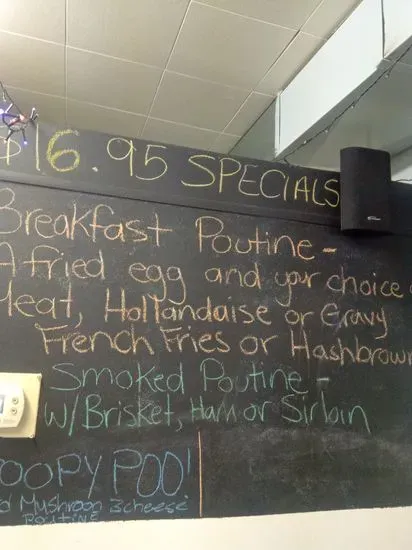 $16.95 SPECIALS
Breakfast Poutine -
A fried egg and your choice
Meat, Hollandaise or Gravy
French Fries or Hashbrown
Smoked Poutine -
w/Brisket, Ham or Sirloin
OOPY POO!
Mushroom 3cheese
Poutine